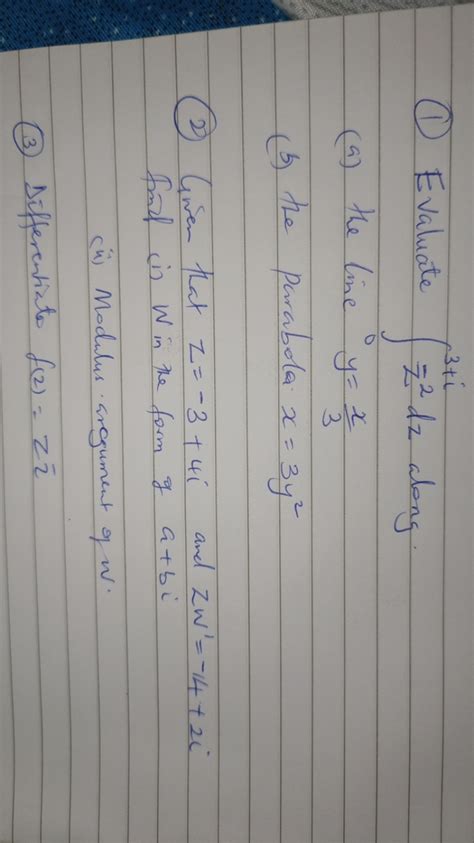 ① Evaluate ∫₀³⁺ⁱ z̄² dz along.
(a) the line y = x/3
(b) the parabola x = 3y²
② Given that z = -3 + 4i and zw = -14 + 2i
find (i) W in the form of a+bi
(ii) Modulus. aregument of w.
③ Differentiate f(z) = z z̄